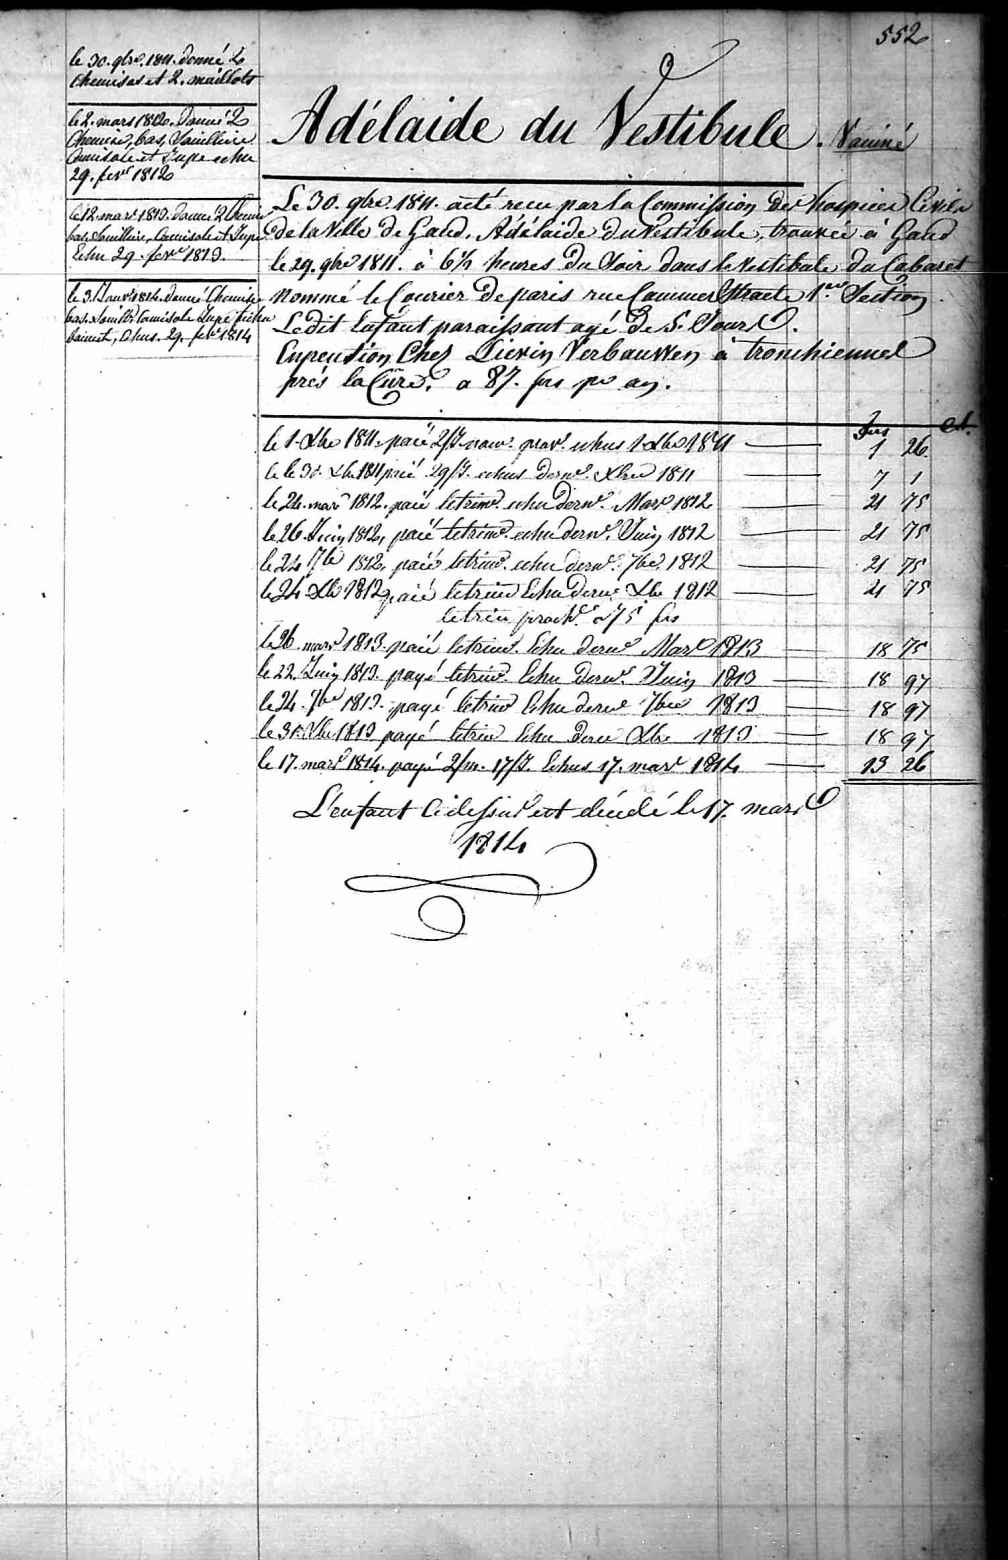 552
le 30. 9bre. 1811. donné 2
Chemises et 2. maillots
le 2. mars 1812. donné 2
Chemise, bas, Souilliere
Camisole et Jupe echu
29. fevr 1812
le 12. mars 1813. donné 2 Chemise
bas, Souilliere, Camisole et Jupe
Echu 29. fevr 1813.
le 31 Janvr 1814. donné Chemise
bas. Souill: Camisole Jupe fichu
Echus. 29. fevr 1814
Adélaide du Vestibule. Vaciné
Le 30. 9bre. 1811. acté recu par la Commission des hospices Civils
de la Ville de Gand, Adélaide du Vestibule, trouvée à Gand
le 29. 9bre 1811. à 6½ heures du Soir dans le Vestibule du Cabaret
nommé le Courier de paris rue Cammerstraete 1.re Section.
Le dit Enfant paraissant agé de 5. Jours.
En pention Chez Lievin Verbauwen à tronchiennes
près la Cure. a 87. frs pr an.
frs Ct.
le 1. Xbre 1811. paié 2/J. nour. prov. echus 1 Xbre 1811 1 26.
le 30. Xbre 1811 paié 29/J. echus dernr. Xbre 1811 7 1
le 24. mars 1812. paié le trimr. echu dernr. Mars 1812 21 75
le 26. Juin 1812, paié le trimr. echu dernr. Juin 1812 21 75
le 24 7bre 1812, paié le trimr. echu dernr. 7bre. 1812 21 75
le 24 Xbre 1812 paié le trime Echu dernr Xbre 1812 21 75
le trim proch. à 75 frs
le 26 mars 1813. paié le trimr. Echu dernr Mars 1813 18 75
le 22 Juin 1813. payé le trimr. Echu Dernr. Juin 1813 18 97
le 24. 7bre 1813. payé le trimr Echu dernr 7bre 1813 18 97
le 31. Xbre 1813 payé le trim Echu dernr Xbre 1813 18 97
le 17. mars 1814. payé 2/m. 17/J. Echus 17. mars 1814 13 26
L'enfant Ci dessus est décédé le 17. mars
1814